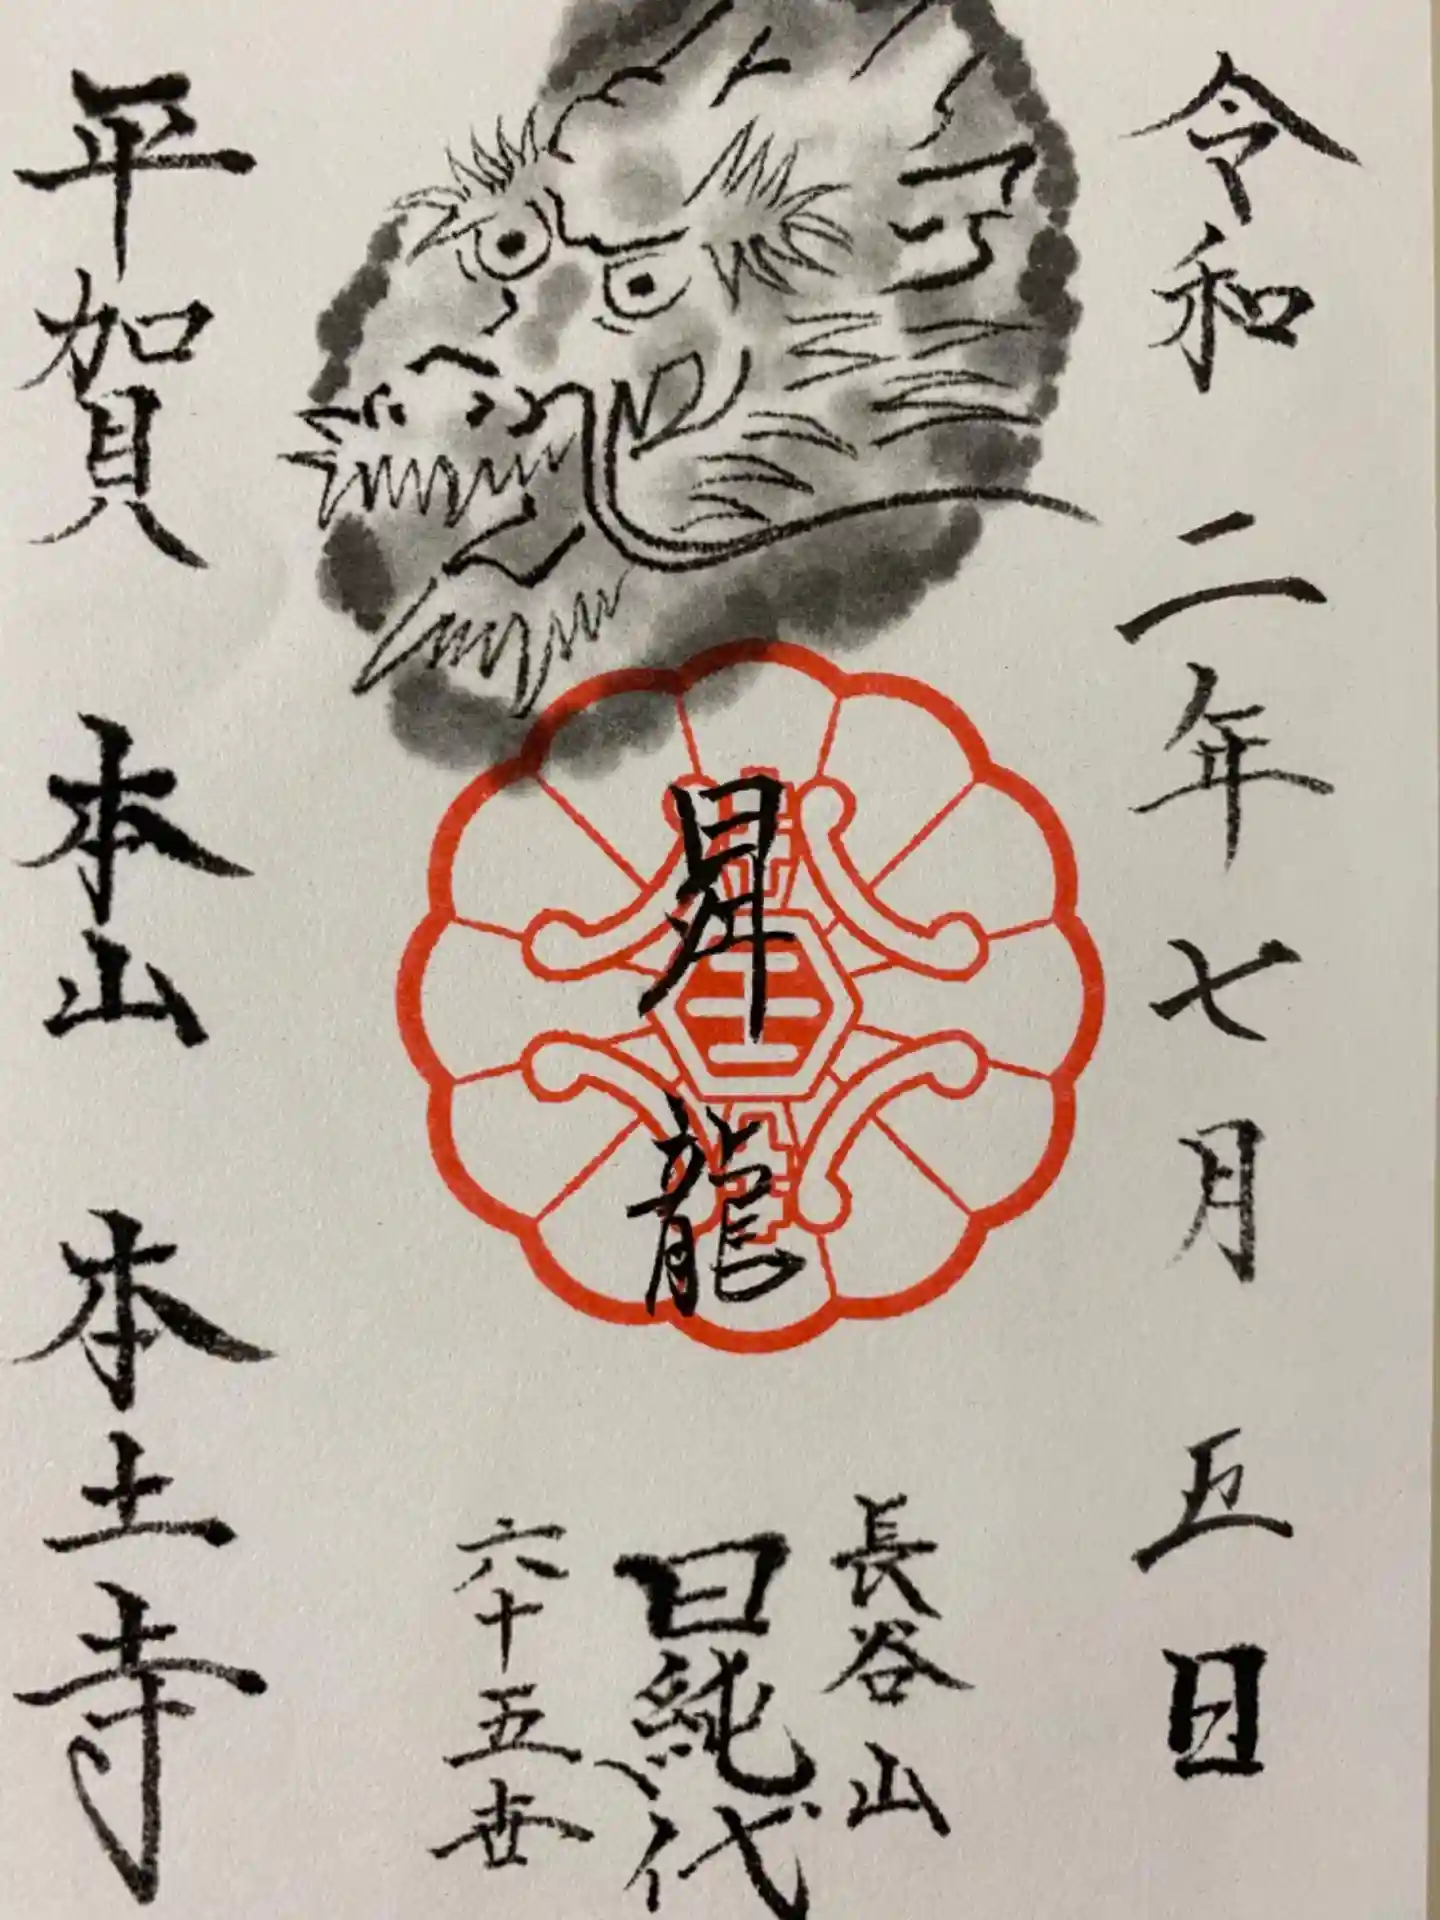 令和二年七月五日
昇龍
長谷山
日純代
六十五世
平賀 本山 本土寺